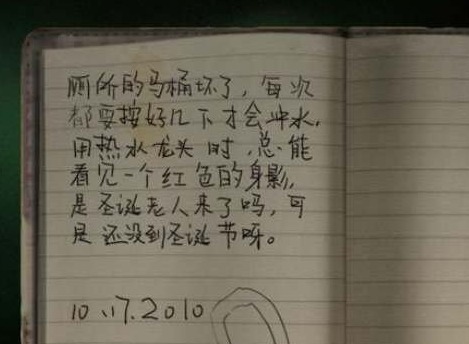 厕所的马桶坏了，每次
都要按好几下才会冲水，
用热水龙头时，总能
看见一个红色的身影，
是圣诞老人来了吗，可
是还没到圣诞节呀。
10.17.2010